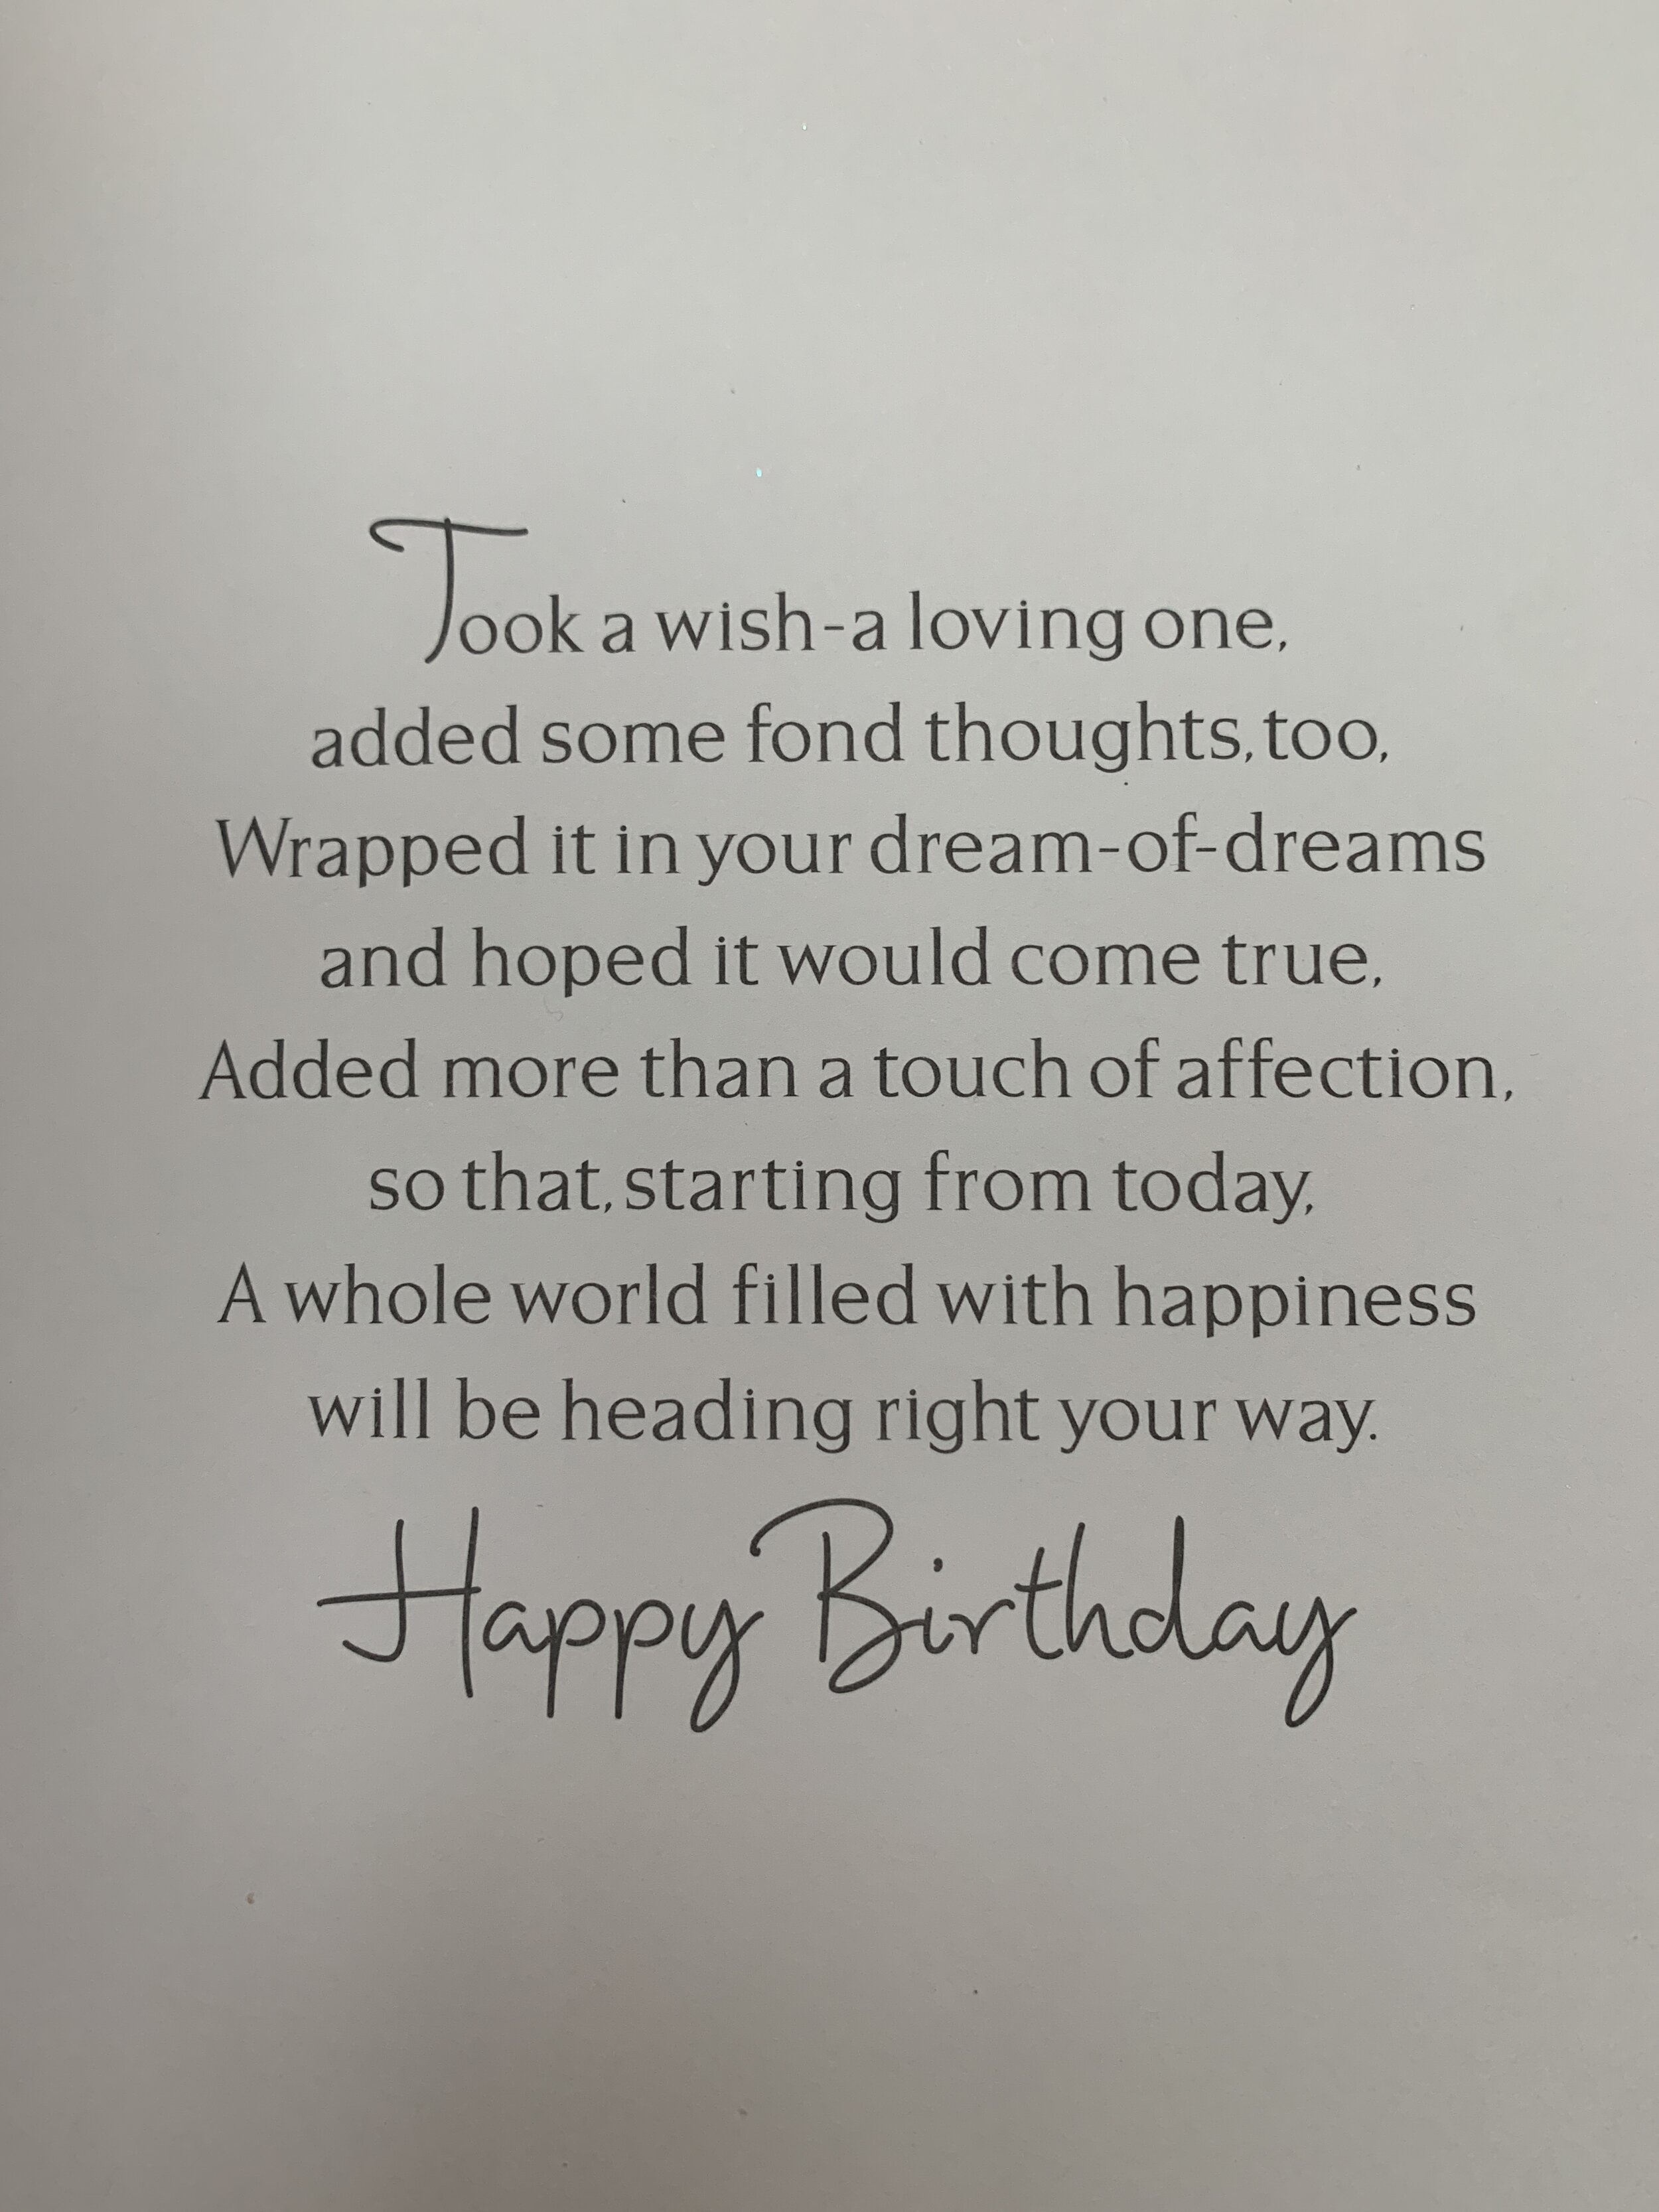 Took a wish-a loving one,
added some fond thoughts, too,
Wrapped it in your dream-of-dreams
and hoped it would come true,
Added more than a touch of affection,
so that, starting from today,
A whole world filled with happiness
will be heading right your way.
Happy Birthday